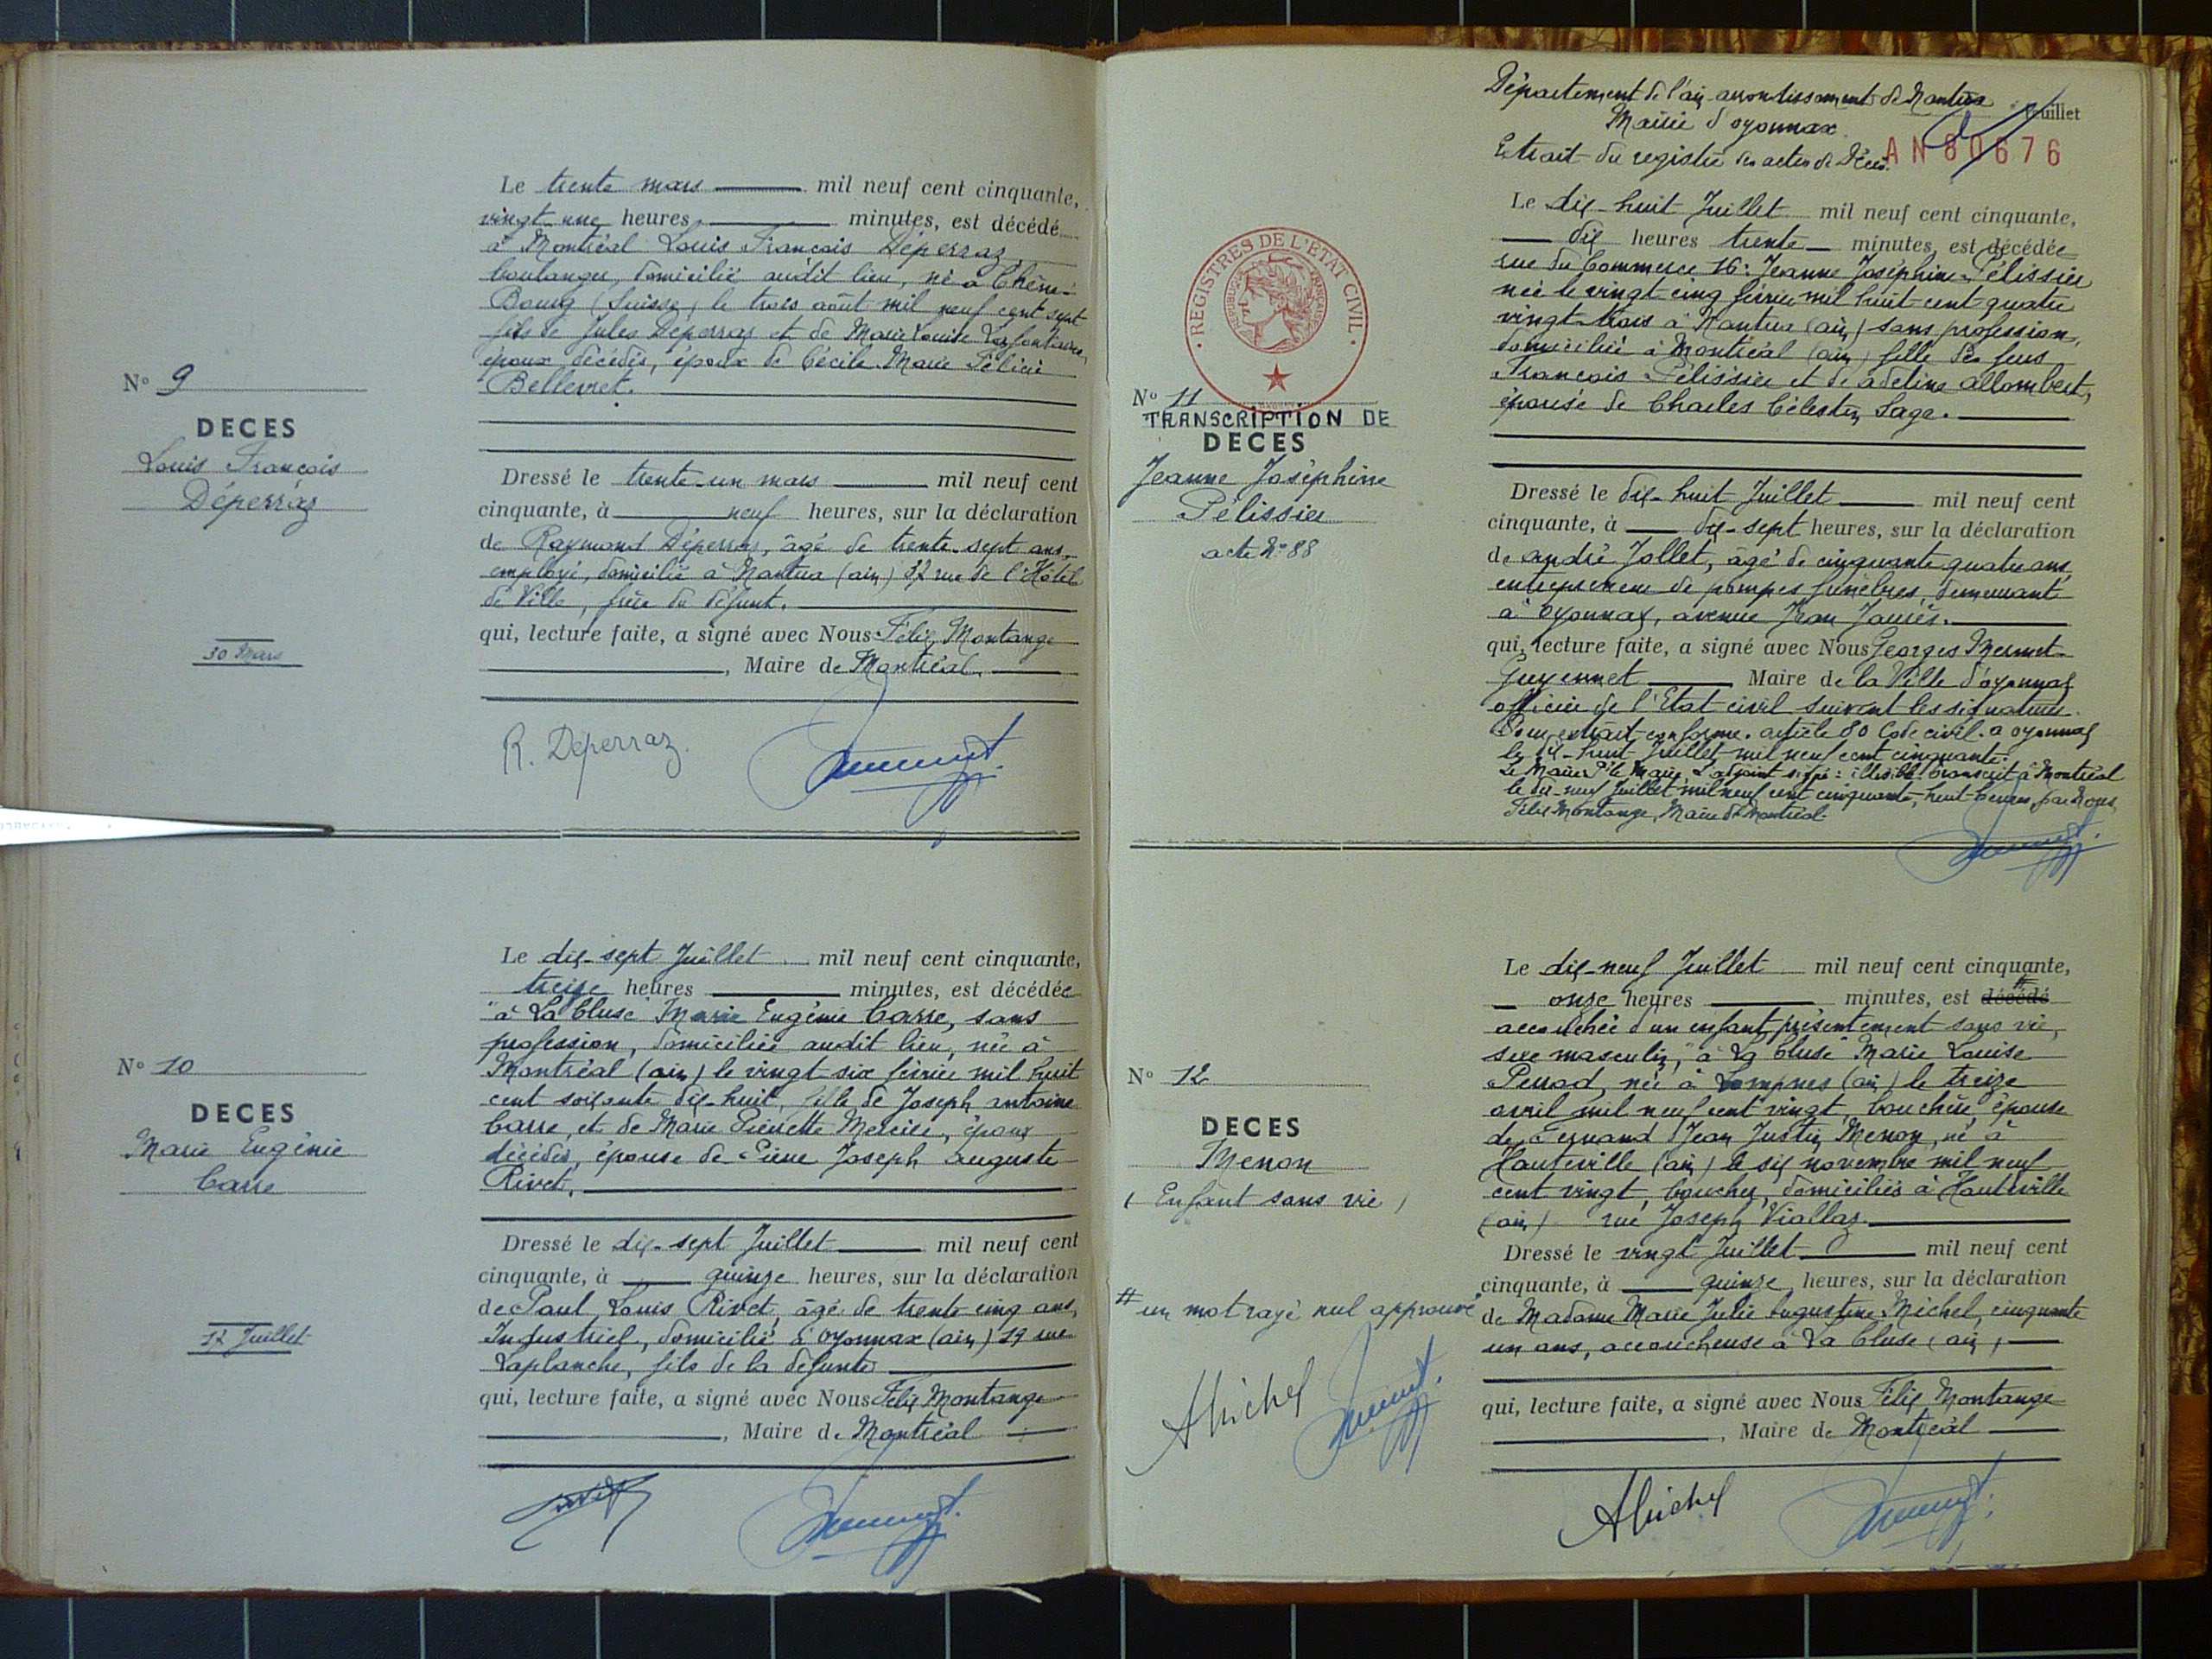 Le trente mars mil neuf cent cinquante,
vingt une heures, minutes, est décédé
à Montréal Louis François Déperraz,
boulanger, domicilié audit lieu, né à Chêne-
Bourg (Suisse) le trois août mil neuf cent sept
fils de Jules Déperraz et de Marie Louise
époux décédés, époux de Cécile Marie
N° 9
DECES
Louis François
Déperraz
Dressé le trente-un mars mil neuf cent
cinquante, à neuf heures, sur la déclaration
de Raymond Déperraz, âgé de trente-sept ans,
employé, domicilié à Nantua (ain) 37 rue de l'Hôtel
de Ville, frère du défunt.
qui, lecture faite, a signé avec Nous Félix Montange
, Maire de Montréal.
30 Mars
R. Déperraz
Le dix-sept Juillet mil neuf cent cinquante,
treize heures minutes, est décédée
"à La Cluse" Marie Eugénie Carre, sans
profession, domiciliée audit lieu, née à
Montréal (ain) le vingt six février mil huit
cent soixante dix-huit, fille de Joseph antoine
Carre, et de Marie Pierrette Mercier, époux
décédés, épouse de Pierre Joseph auguste
Rivet.
N° 10
DECES
Marie Eugénie
Carre
Dressé le dix-sept Juillet mil neuf cent
cinquante, à quinze heures, sur la déclaration
de Paul Louis Rivet, âgé de trente cinq ans,
Industriel, domicilié à oyonnax (ain) 19 rue
Laplanche, fils de la défunte
qui, lecture faite, a signé avec Nous Félix Montange
, Maire de Montréal
17 Juillet
Département de l'ain arrondissement de Nantua
Feuillet
Mairie d'oyonnax
Extrait du registre des actes de Décès.
AN 80676
Le dix-huit Juillet mil neuf cent cinquante,
dix heures trente minutes, est décédée
rue du Commerce 16: Jeanne Joséphine Pélissier
née le vingt-cinq février mil huit-cent-quatre
vingt-trois à Nantua (ain) sans profession,
domiciliée à Montréal (ain) fille des feus
François Pélissier et de adeline allombert,
épouse de Charles Célestin Sage.
REGISTRES DE L'ETAT CIVIL
N° 11
TRANSCRIPTION DE
DECES
Jeanne Joséphine
Pélissier
acte N° 88
Dressé le dix-huit Juillet mil neuf cent
cinquante, à dix-sept heures, sur la déclaration
de andré Jollet, âgé de cinquante-quatre ans,
entrepreneur de pompes funèbres, demeurant
à oyonnax, avenue Jean Jaurès.
qui, lecture faite, a signé avec Nous Georges Mermet-
Guyennet Maire de la Ville d'oyonnax
officier de l'Etat civil suivent les signatures.
Pour extrait conforme. article 80 Code civil. a oyonnax
le dix-huit Juillet mil neuf cent cinquante.
Le Maire Pr le Maire, L'adjoint signé: illisible. Transcrit à Montréal
le dix-neuf Juillet mil neuf cent cinquante, huit heures, par Nous,
Félix Montange, Maire de Montréal.
Le dix-neuf Juillet mil neuf cent cinquante,
onze heures minutes, est décédé #
accouchée d'un enfant présentement sans vie,
sexe masculin, "à La Cluse" Marie Louise
Perrod, née à Lompnes (ain) le treize
avril mil neuf cent vingt, bouchère, épouse
de Fernand Jean Justin Menon, né à
Hauteville (ain) le six novembre mil neuf
cent vingt, boucher, domiciliés à Hauteville
(ain) rue Joseph Viallaz.
N° 12
DECES
Menon
(Enfant sans vie)
Dressé le vingt Juillet mil neuf cent
cinquante, à quinze heures, sur la déclaration
de Madame Marie Julie augustine Michel, cinquante
un ans, accoucheuse à La Cluse (ain)
# un mot rayé nul approuvé
qui, lecture faite, a signé avec Nous Félix Montange
, Maire de Montréal
AMichel
AMichel